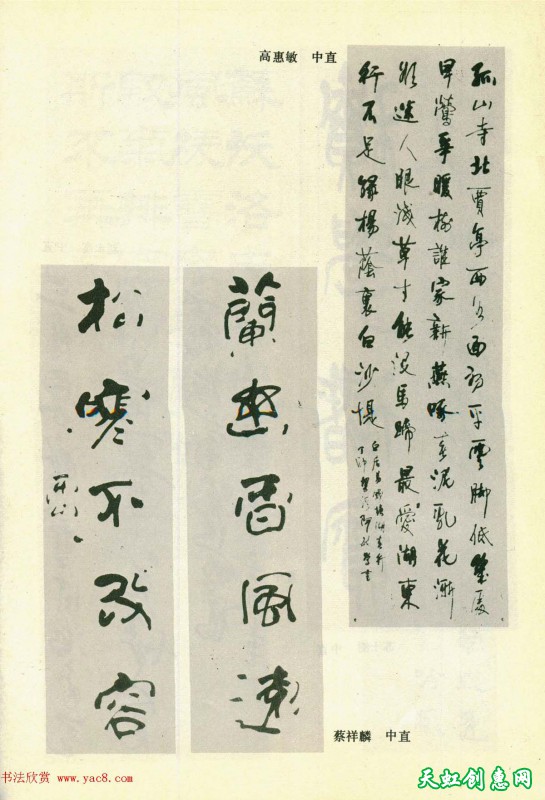 高惠敏 中直
孤山寺北賈亭西水面初平雲脚低幾處
早鶯爭暖樹誰家新燕啄春泥乱花漸
欲迷人眼淺草才能没馬蹄最愛湖東
行不足緑楊蔭裏白沙堤
白居易錢塘湖春行
蘭幽香風遠
松寒不改容
蔡祥麟 中直
书法欣赏 www.yac8.com
天虹创意网